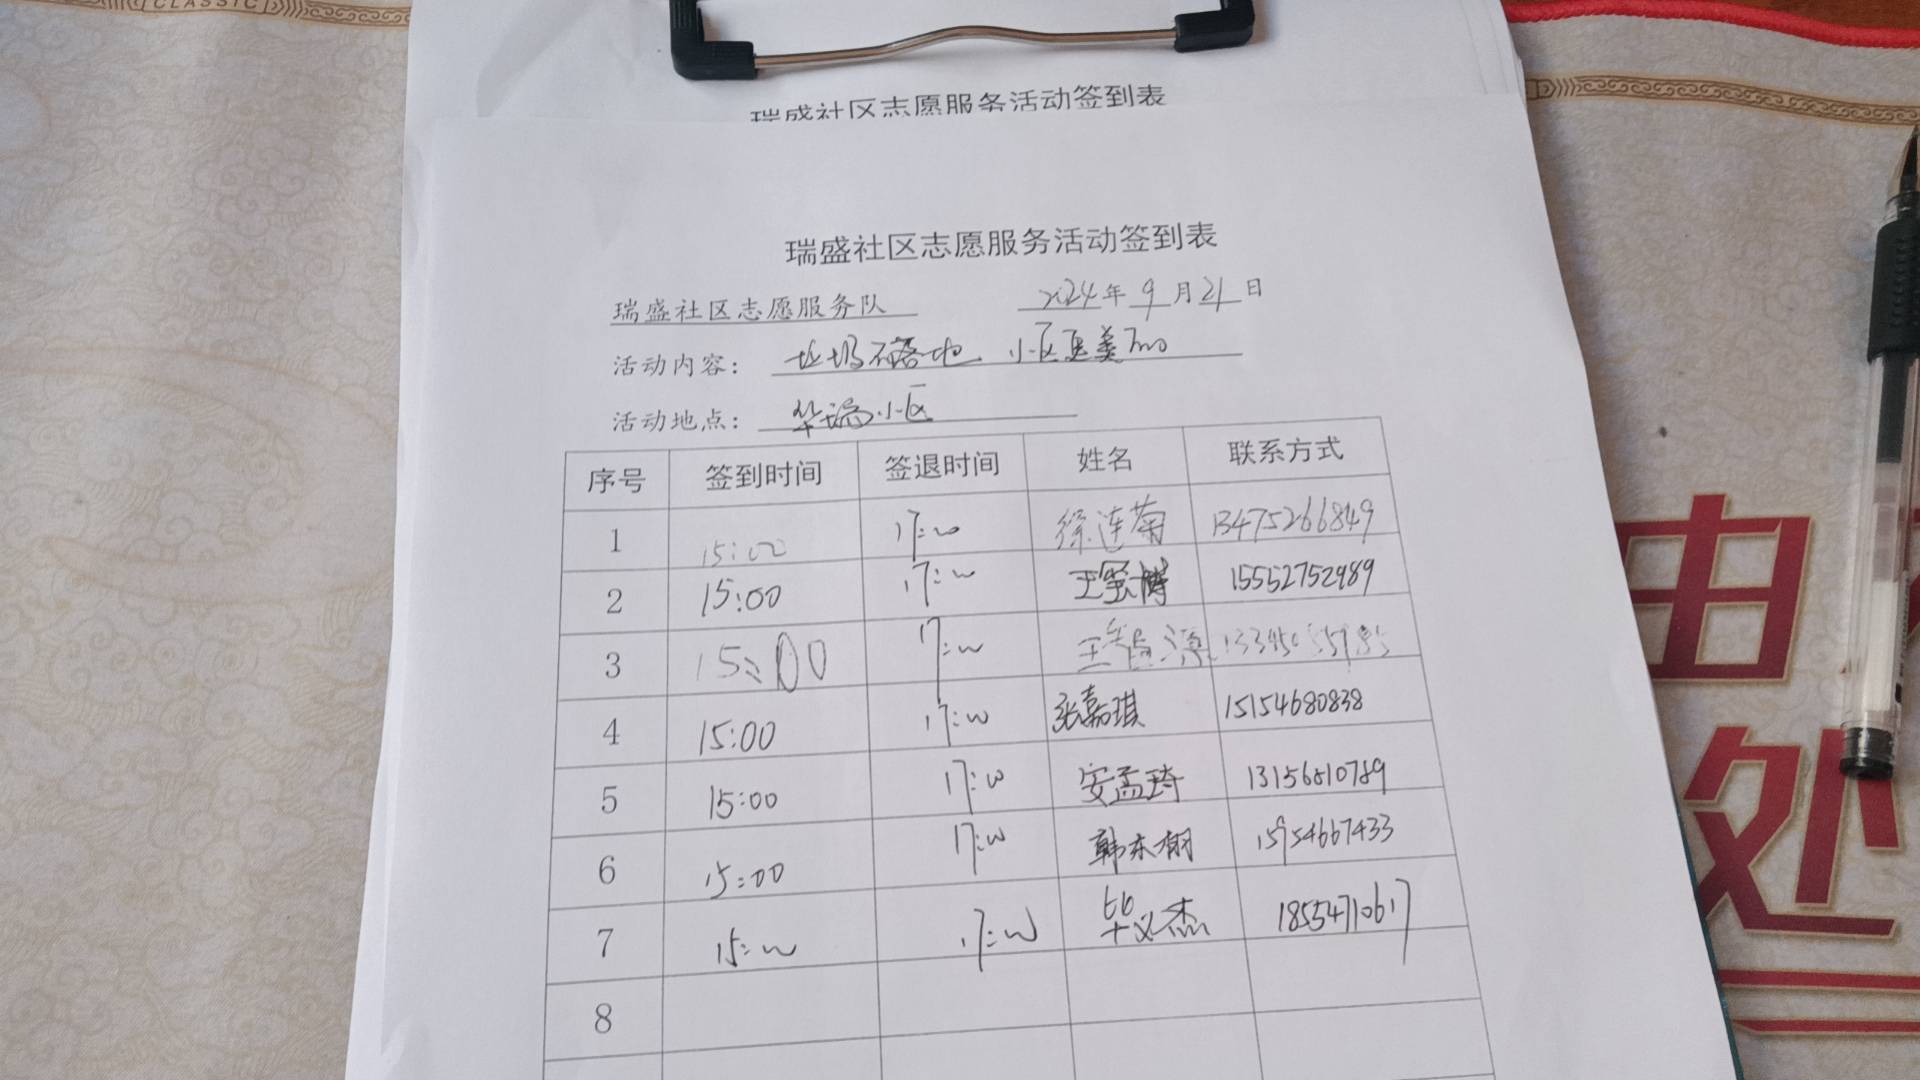 CLASSIC
瑞盛社区志愿服务活动签到表
瑞盛社区志愿服务活动签到表
瑞盛社区志愿服务队 2024年 9 月 21 日
活动内容: 垃圾不落地 小区更美丽
活动地点: 华瑞小区
序号 签到时间 签退时间 姓名 联系方式
1 15:00 17:00 徐连菊 13475266849
2 15:00 17:00 王 博 15552752989
3 15:00 17:00 王 源
4 15:00 17:00 张嘉琪 15154680838
5 15:00 17:00 安孟琦 13156510789
6 15:00 17:00 韩东栩 15954667433
7 15:00 17:00 毕义杰 18554710617
8
由
处